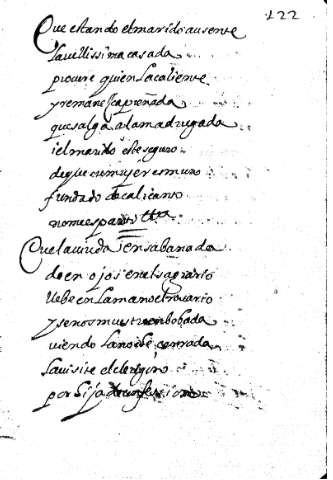 122
Que estando el marido ausente
la vellissima casada
procure quien la caliente
y remanesca preñada
que salga a la madrugada
i el marido este seguro
de que su muger es muro
fundado de cal i canto
no me espanto ettra
Que la viuda ensabanada
de en ojos en el sagrario
llebe en la mano el rosario
y se nos muestre enbobada
viendo la noche cerrada
la visite el clerigon
por hija de confesion